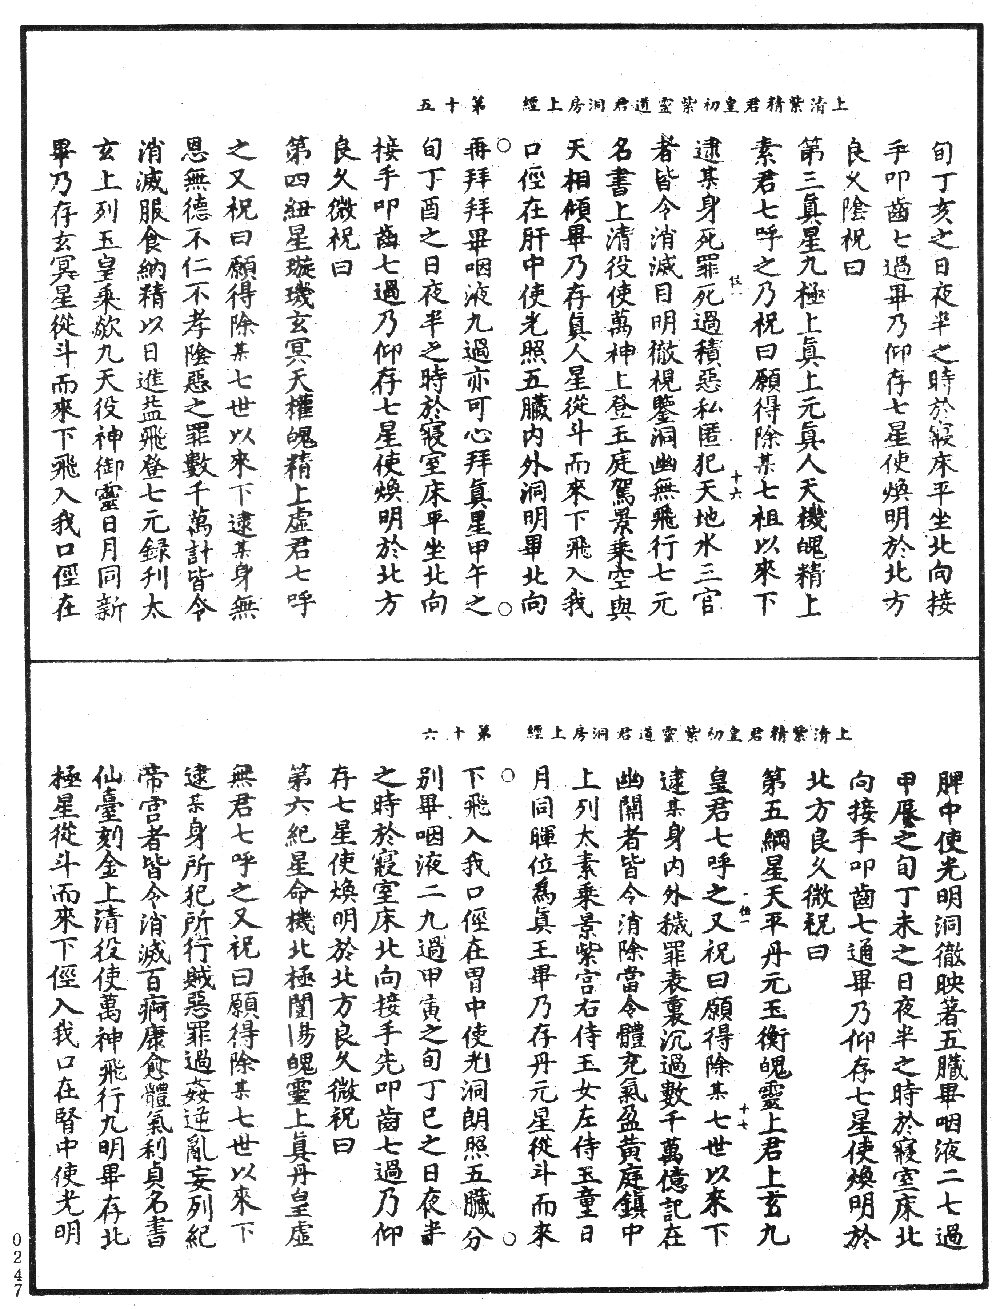 上清紫精君皇初紫靈道君洞房上經　第十五
旬丁亥之日夜半之時於寢床平坐北向接
手叩齒七過畢乃仰存七星使煥明於北方
良久陰祝曰
第三真星九極上真上元真人天機魄精上
素君七呼之乃祝曰願得除某七祖以來下
十六
逮某身死罪死過積惡私匿犯天地水三官
者皆令消滅目明徹視鑒洞幽無飛行七元
名書上清役使萬神上登玉庭駕景乘空與
天相傾畢乃存真人星從斗而來下飛入我
口徑在肝中使光照五臟內外洞明畢北向
再拜拜畢咽液九過亦可心拜真星甲午之
旬丁酉之日夜半之時於寢室床平坐北向
接手叩齒七過乃仰存七星使煥明於北方
良久微祝曰
第四紐星璇璣玄冥天權魄精上虛君七呼
之又祝曰願得除某七世以來下逮某身無
恩無德不仁不孝陰惡之罪數千萬計皆令
消滅服食納精以日進益飛登七元錄刋太
玄上列玉皇乘欻九天役神御靈日月同新
畢乃存玄冥星從斗而來下飛入我口徑在
上清紫精君皇初紫靈道君洞房上經　第十六
脾中使光明洞徹映著五臟畢咽液二七過
甲辰之旬丁未之日夜半之時於寢室床北
向接手叩齒七通畢乃仰存七星使煥明於
北方良久微祝曰
第五綱星天平丹元玉衡魄靈上君上玄九
皇君七呼之又祝曰願得除某七世以來下
十七
逮某身內外穢罪表裏沉過數千萬億記在
幽關者皆令消除當令體充氣盈黃庭鎮中
上列太素乘景紫宮右侍玉女左侍玉童日
月同暉位為真王畢乃存丹元星從斗而來
下飛入我口徑在胃中使光洞朗照五臟分
別畢咽液二九過甲寅之旬丁巳之日夜半
之時於寢室床北向接手先叩齒七過乃仰
存七星使煥明於北方良久微祝曰
第六紀星命機北極闓陽魄靈上真丹皇虛
無君七呼之又祝曰願得除某七世以來下
逮某身所犯所行賊惡罪過姦逆亂妄列紀
帝宮者皆令消滅百痾康愈體氣利貞名書
仙臺刻金上清役使萬神飛行九明畢存北
極星從斗而來下徑入我口在腎中使光明
0247